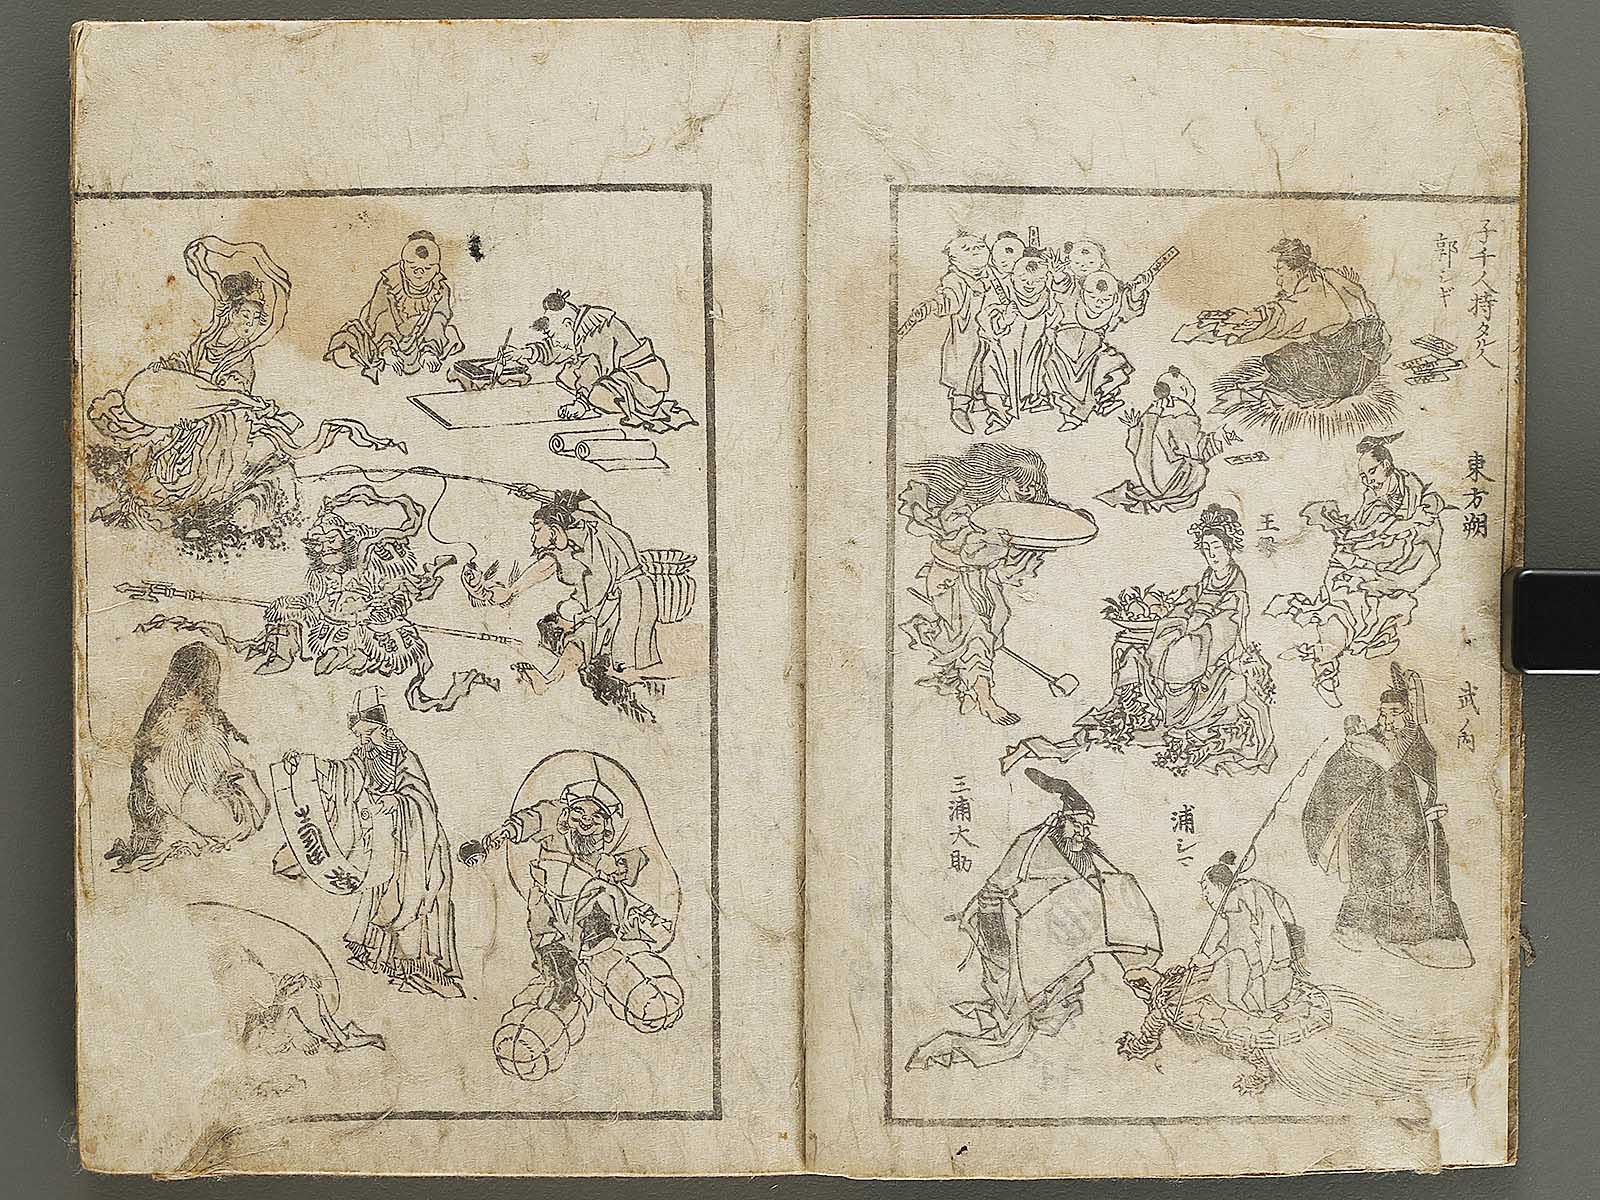 子千人持タル人
郭シギ
東方朔
王
武ノ内
浦シマ
三浦大助